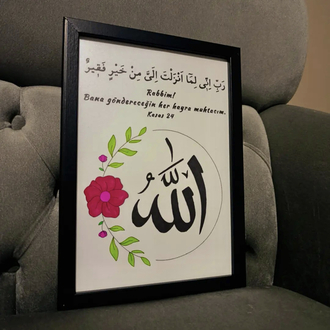 رَبِّ اِنّ۪ي لِمَٓا اَنْزَلْتَ اِلَيَّ مِنْ خَيْرٍ فَق۪يرٌ
Rabbim!
Bana göndereceğin her hayra muhtacım.
Kasas 24
الله